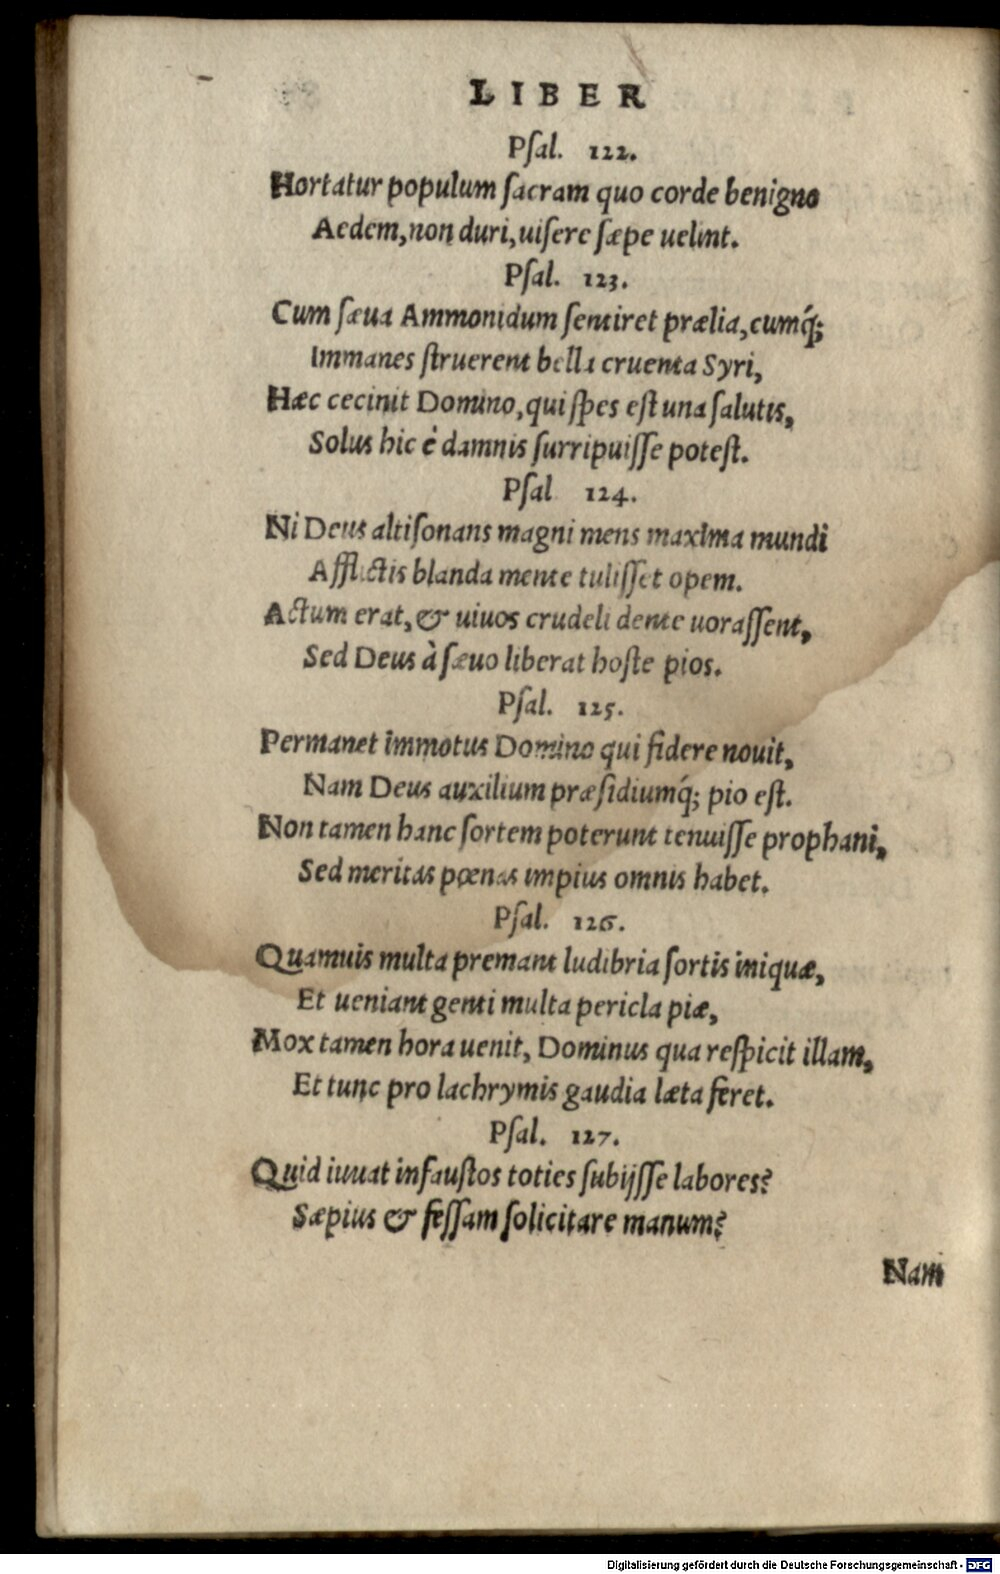 LIBER
Pſal. 122.
Hortatur populum ſacram quo corde benigno
Aedem, non duri, uiſere ſæpe uelint.
Pſal. 123.
Cum ſæua Ammonidum ſentiret prælia, cumq́;
Immanes ſtruerent bella cruenta Syri,
Hæc cecinit Domino, qui ſpes eſt una ſalutis,
Solus hic è damnis ſurripuiſſe poteſt.
Pſal 124.
Ni Deus altiſonans magni mens maxima mundi
Afflictis blanda mente tuliſſet opem.
Actum erat, & uiuos crudeli dente uoraſſent,
Sed Deus à ſæuo liberat hoſte pios.
Pſal. 125.
Permanet immotus Domino qui fidere nouit,
Nam Deus auxilium præſidiumq́; pio eſt.
Non tamen hanc ſortem poterunt tenuiſſe prophani,
Sed meritas pœnas impius omnis habet.
Pſal. 126.
Quamuis multa premant ludibria ſortis iniquæ,
Et ueniant genti multa pericla piæ,
Mox tamen hora uenit, Dominus qua reſpicit illam,
Et tunc pro lachrymis gaudia læta feret.
Pſal. 127.
Quid iuuat infauſtos toties ſubijſſe labores?
Sæpius & feſſam ſolicitare manum?
Nam
Digitalisierung gefördert durch die Deutsche Forschungsgemeinschaft - DFG